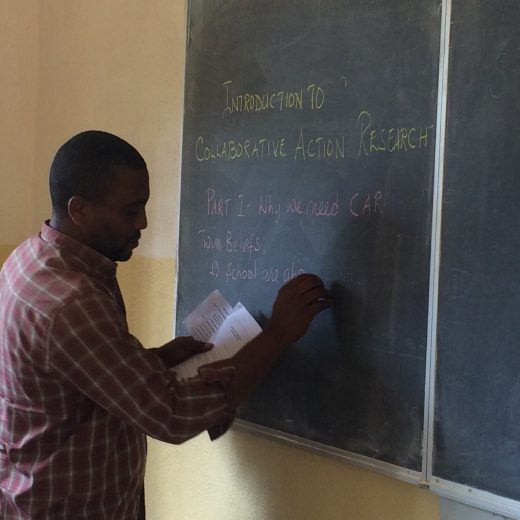 INTRODUCTION TO
COLLABORATIVE ACTION RESEARCH
PART I - Why we need CAR
Twin Beliefs:
1) School are